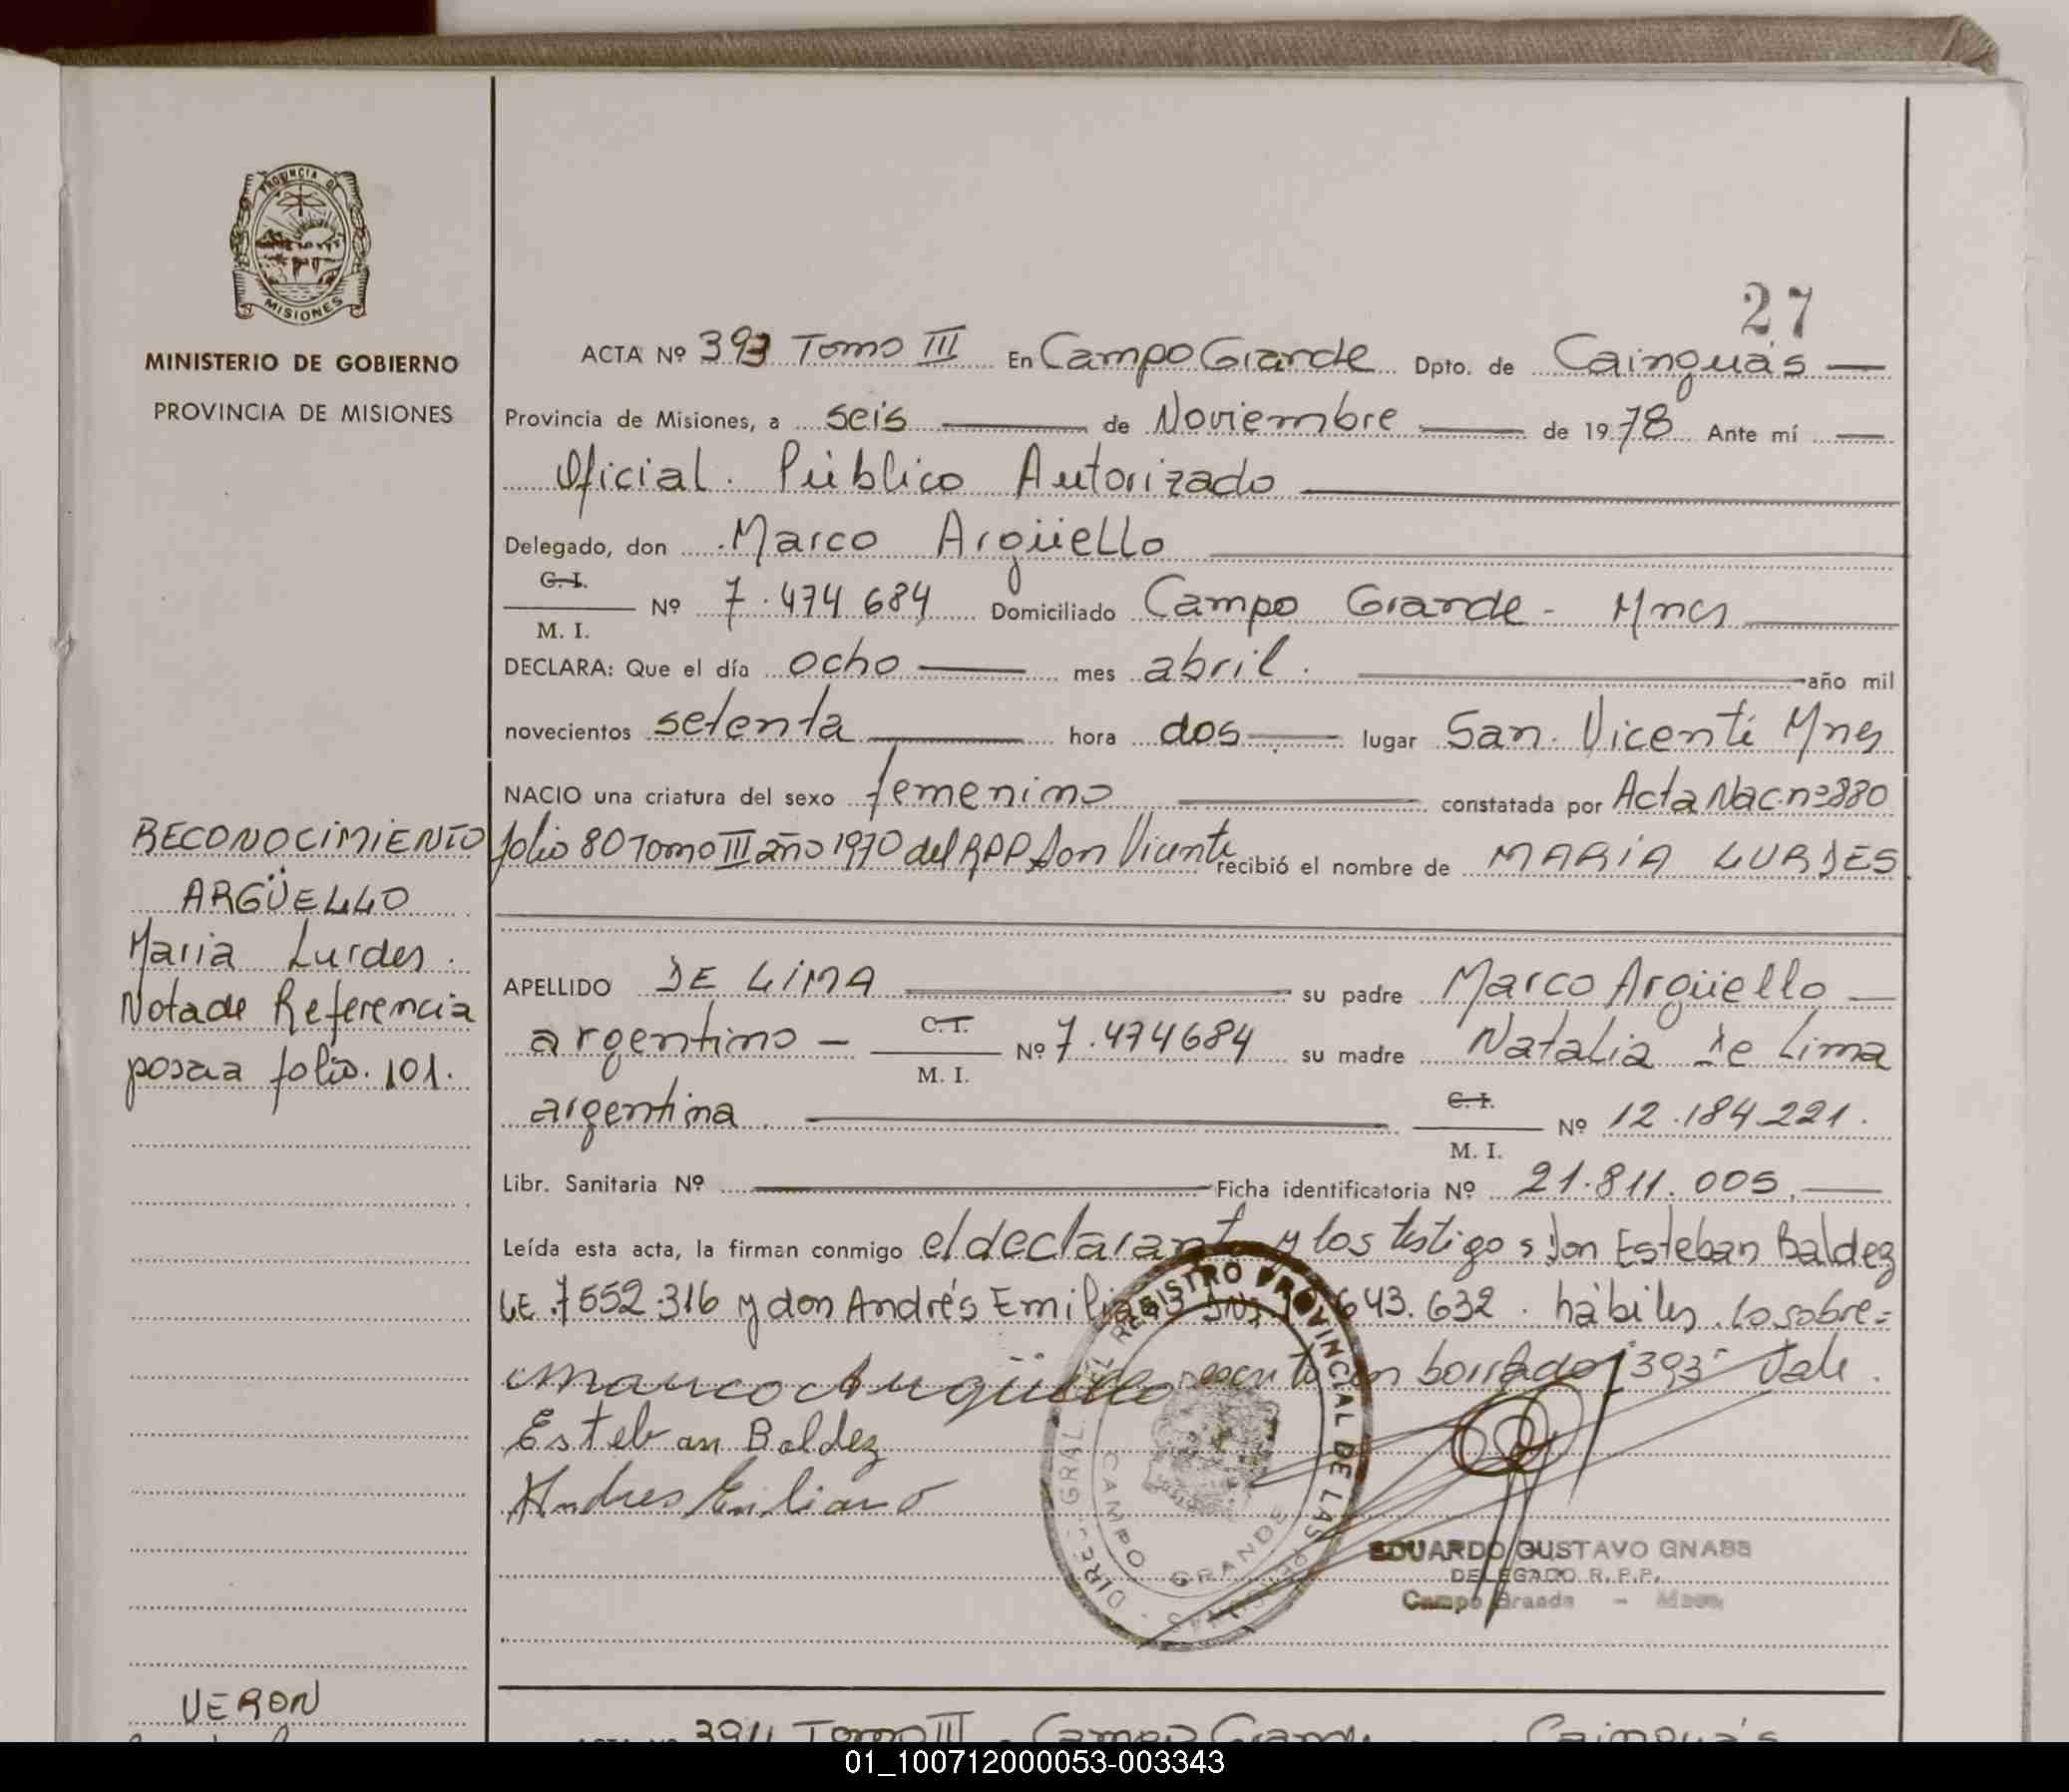 PROVINCIA DE
MISIONES
MINISTERIO DE GOBIERNO
PROVINCIA DE MISIONES
27
ACTA Nº 393 Tomo III En Campo Grande Dpto. de Cainguás
Provincia de Misiones, a seis de Noviembre de 1978 Ante mí
Oficial Público Autorizado
Delegado, don Marco Argüello
C. I.
M. I.
Nº 7.474684 Domiciliado Campo Grande - Mnes
DECLARA: Que el día ocho mes abril. año mil
novecientos setenta hora dos lugar San Vicente Mnes
NACIO una criatura del sexo femenino constatada por Acta Nac. nº 880
folio 80 Tomo III año 1970 del RPP San Vicente recibió el nombre de MARIA LURDES
RECONOCIMIENTO
ARGÜELLO
Maria Lurdes.
Nota de Referencia
pasa a folio. 101.
APELLIDO DE LIMA su padre Marco Argüello
argentino - C. I. M. I. Nº 7.474684 su madre Natalia De Lima
argentina C. I. M. I. Nº 12.184.221.
Libr. Sanitaria Nº Ficha identificatoria Nº 21.811.005.
Leída esta acta, la firman conmigo el declarante y los testigos don Esteban Baldez
LE. 7552.316 y don Andrés Emiliano 643.632. hábiles. lo sobre=
Marco Argüello escrito en borrado "393" Vale.
Esteban Baldez
Andres Emiliano
DIREC. GRAL. DEL REGISTRO PROVINCIAL DE LAS PERSONAS
CAMPO GRANDE
EDUARDO GUSTAVO GNASS
DELEGADO R. P. P.
Campo Grande - Mnes.
VERON
394 Tomo III Campo Grande Cainguás
01_100712000053-003343